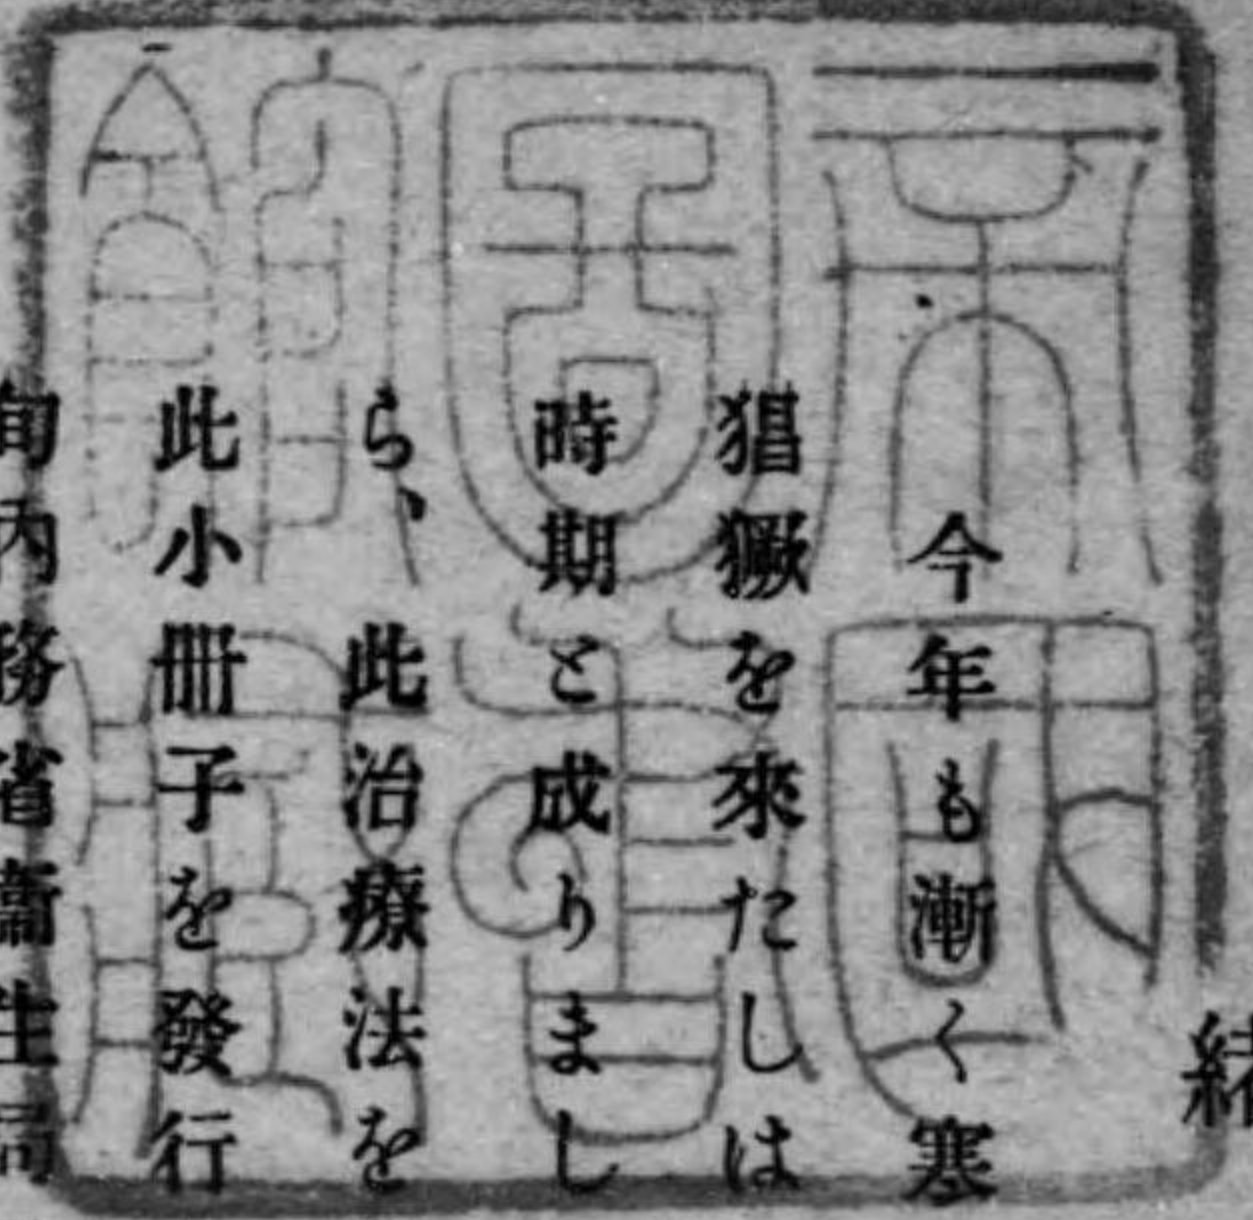 緒
今年も漸く寒
猖獗を來たしは
時期と成りまし
ら、此治療法を
此小冊子を發行
旬内務省衞生局
帝國圖書館藏